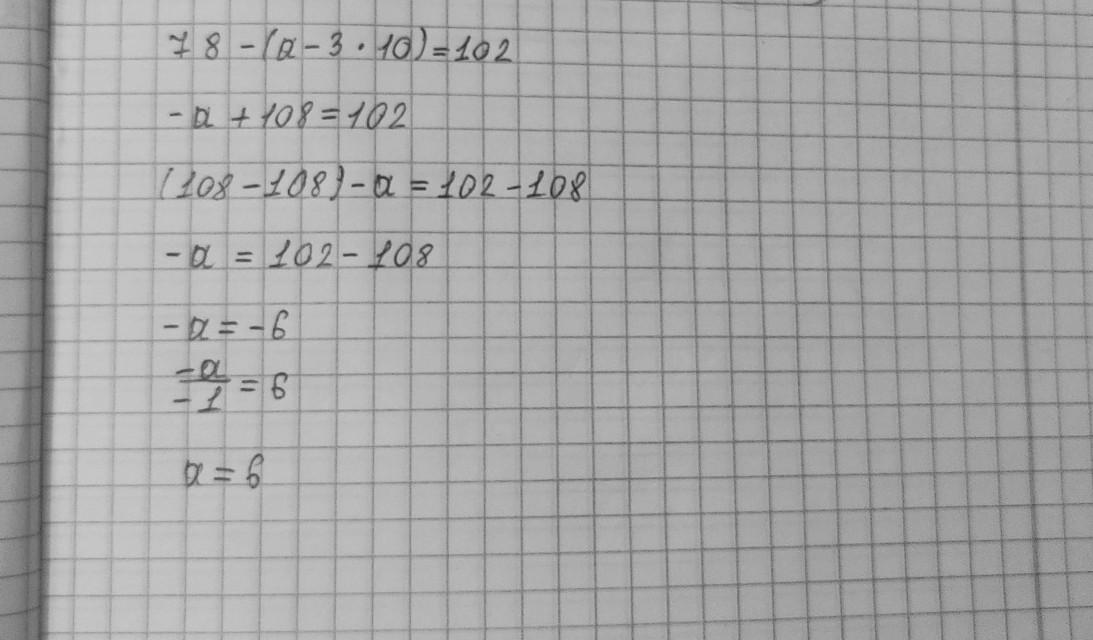 78-(a-3·10)=102
-a+108=102
(108-108)-a=102-108
-a=102-108
-a=-6
-a/-1=6
a=6